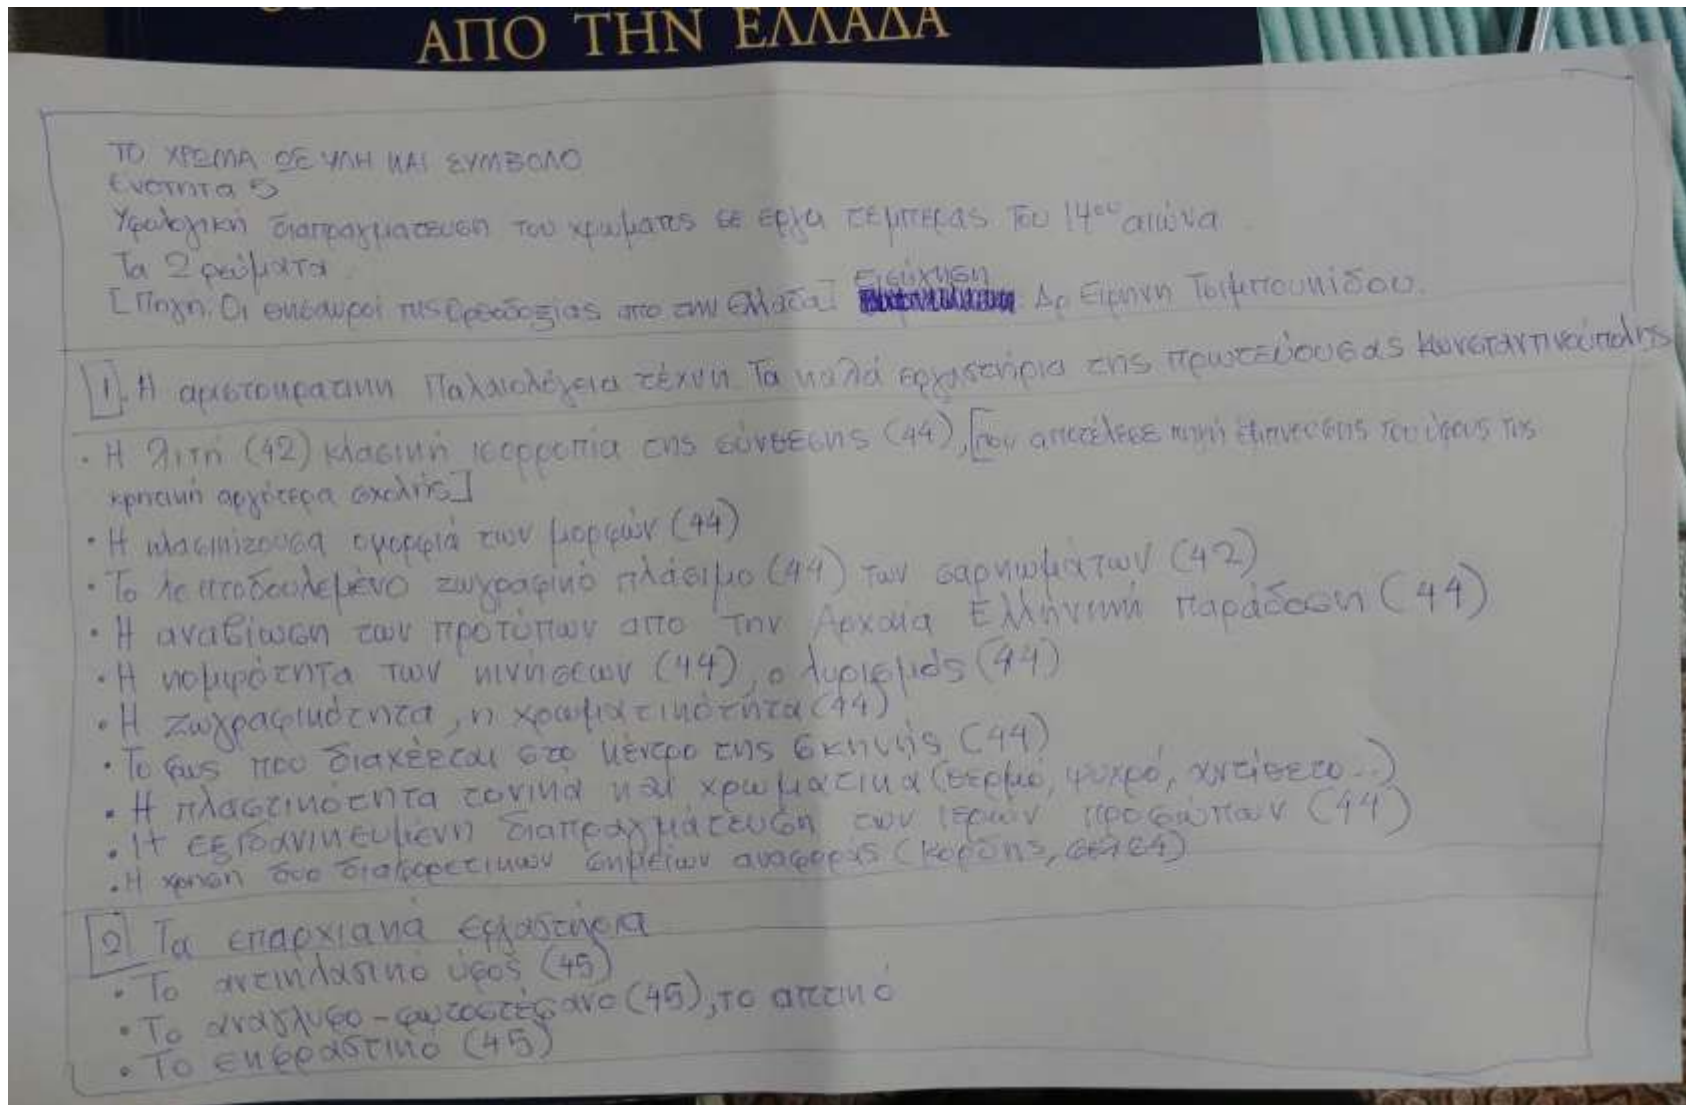 ΑΠΟ ΤΗΝ ΕΛΛΑΔΑ
ΤΟ ΧΡΩΜΑ ΩΣ ΥΛΗ ΚΑΙ ΣΥΜΒΟΛΟ
Ενοτητα 5
Υφολογική διαπραγματευση του χρωματος σε εργα τεμπερας του 14ου αιώνα.
Τα 2 ρεύματα.
Εισήγηση
[Πηγη. Οι θησαυροί της Ορθοδοξίας απο την Ελλαδα] Δρ Ειρηνη Τσιμπουκίδου.
1. Η αριστοκρατικη Παλαιολόγεια τέχνη. Τα καλά εργαστηρια της πρωτεύουσας Κωνσταντινούπολης
• Η λιτή (42) κλασική ισορροπία της σύνθεσης (44), [που αποτέλεσε πηγή έμπνευσης του ύφους της
κρητική αργότερα σχολής]
• Η κλασικίζουσα ομορφιά των μορφών (44)
• Το λεπτοδουλεμένο ζωγραφικό πλάσιμο (44) των σαρκωμάτων (42)
• Η αναβίωση των προτύπων απο την Αρχαία Ελληνική παράδοση (44)
• Η κομψότητα των κινήσεων (44), ο λυρισμός (44)
• Η ζωγραφικότητα, η χρωματικότητα (44)
• Το φως που διαχέεται στο κέντρο της σκηνής (44)
• Η πλαστικότητα τονικά και χρωματικα (θερμό, ψυχρό, αντίθετο...)
• Η εξιδανικευμένη διαπραγμάτευση των ιερών προσώπων (44)
• Η χρηση δυο διαφορετικων σημείων αναφοράς (Κορδης,
2 Τα επαρχιακά εργαστήρια
• Το αντικλασικό ύφος (45)
• Το ανάγλυφο - φωτοστέφανο (45), το απτικό
• Το εκφραστικό (45)